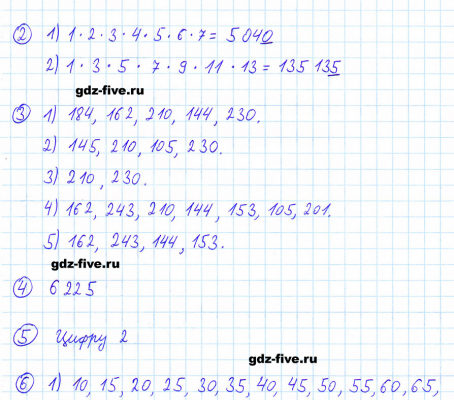 ② 1) 1 · 2 · 3 · 4 · 5 · 6 · 7 = 5 040
2) 1 · 3 · 5 · 7 · 9 · 11 · 13 = 135 135
gdz-five.ru
③ 1) 184, 162, 210, 144, 230.
2) 145, 210, 105, 230.
3) 210, 230.
4) 162, 243, 210, 144, 153, 105, 201.
5) 162, 243, 144, 153.
gdz-five.ru
④ 6 225
⑤ Цифру 2
gdz-five.ru
⑥ 1) 10, 15, 20, 25, 30, 35, 40, 45, 50, 55, 60, 65,